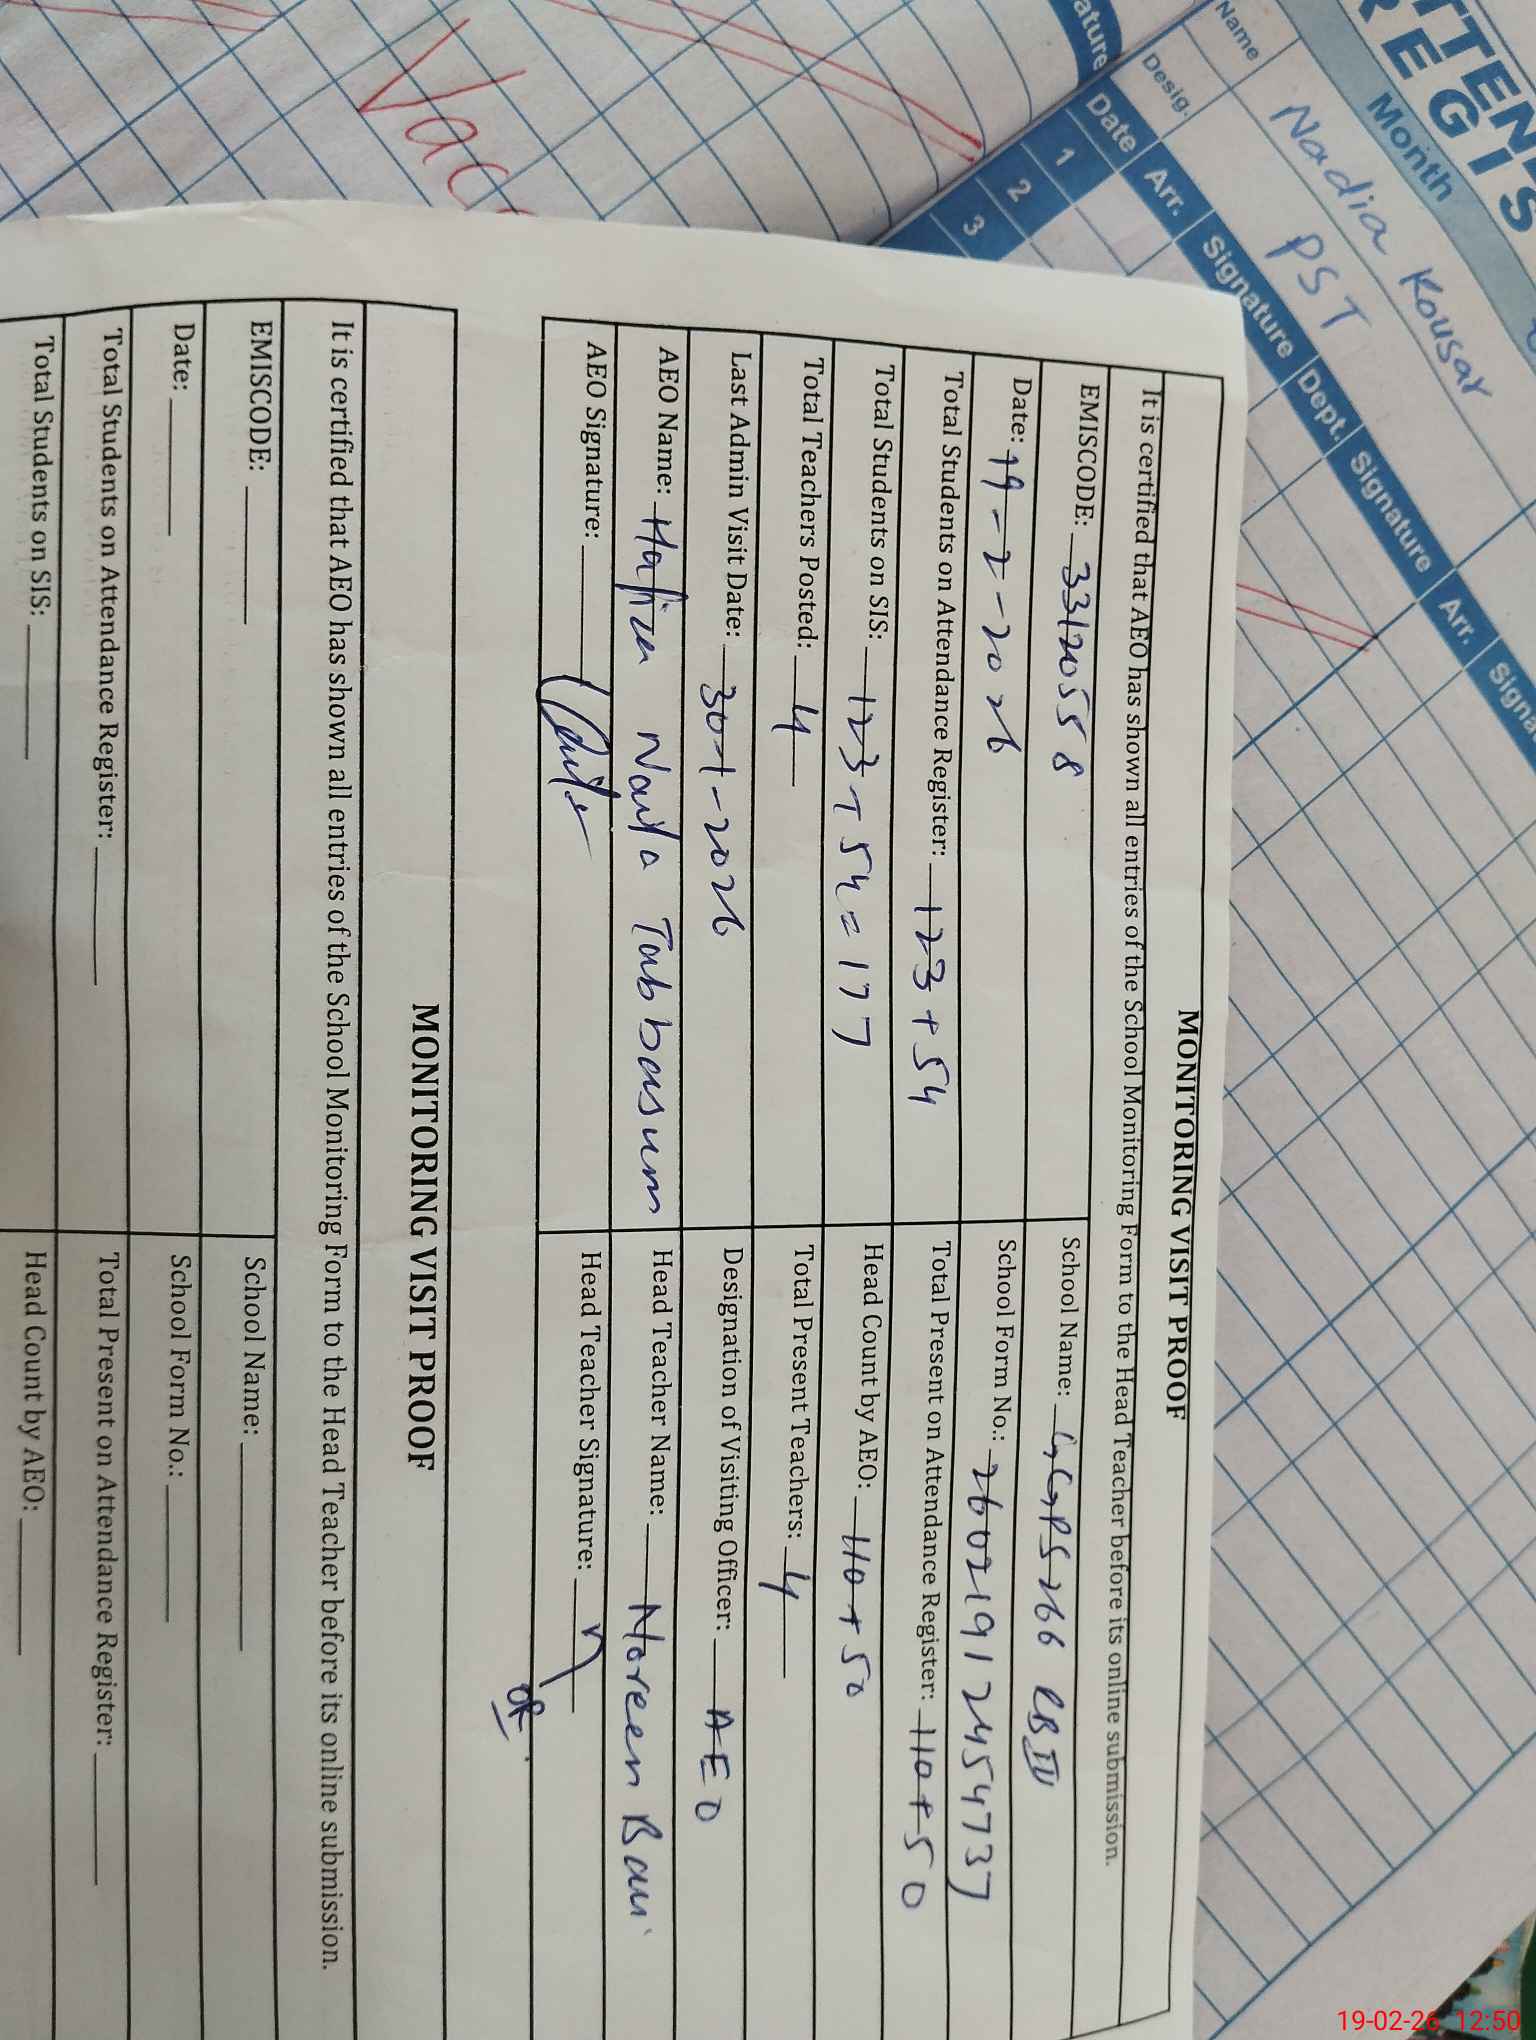 ATTEN
REGIS
Month
Name
Nadia Kousar
Desig.
PST
ature
Date Arr. Signature Dept. Signature Arr. Signa
1
2
3
Vac
MONITORING VISIT PROOF
It is certified that AEO has shown all entries of the School Monitoring Form to the Head Teacher before its online submission.
EMISCODE: 33120558 School Name: GGPS 266 RB IV
Date: 19-2-2026 School Form No.: 26021912454737
Total Students on Attendance Register: 123 + 54 Total Present on Attendance Register: 110 + 50
Total Students on SIS: 123 + 54 = 177 Head Count by AEO: 110 + 50
Total Teachers Posted: 4 Total Present Teachers: 4
Last Admin Visit Date: 30-1-2026 Designation of Visiting Officer: AEO
AEO Name: Hafiza Naila Tabbasum Head Teacher Name: Noreen
AEO Signature: Head Teacher Signature:
MONITORING VISIT PROOF
It is certified that AEO has shown all entries of the School Monitoring Form to the Head Teacher before its online submission.
EMISCODE: School Name:
Date: School Form No.:
Total Students on Attendance Register: Total Present on Attendance Register:
Total Students on SIS: Head Count by AEO:
19-02-26 12:50